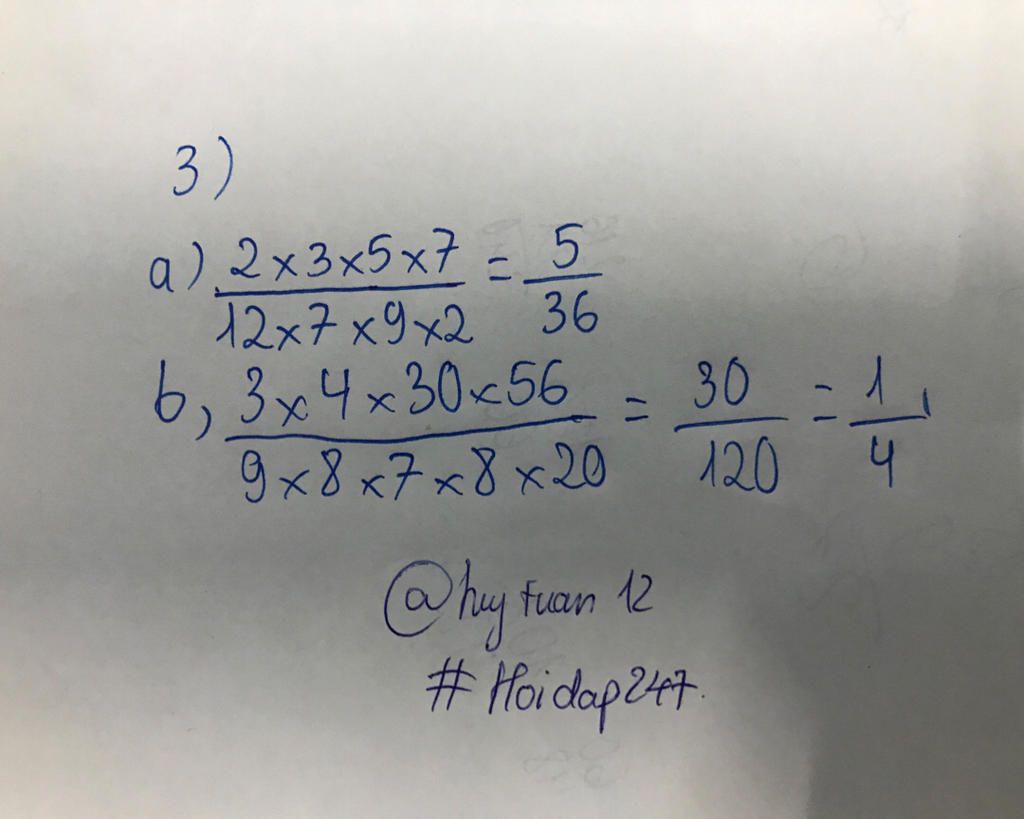 3)
a) 2×3×5×7 / 12×7×9×2 = 5/36
b, 3×4×30×56 / 9×8×7×8×20 = 30/120 = 1/4
@huytuan 12
# Hoidap247.